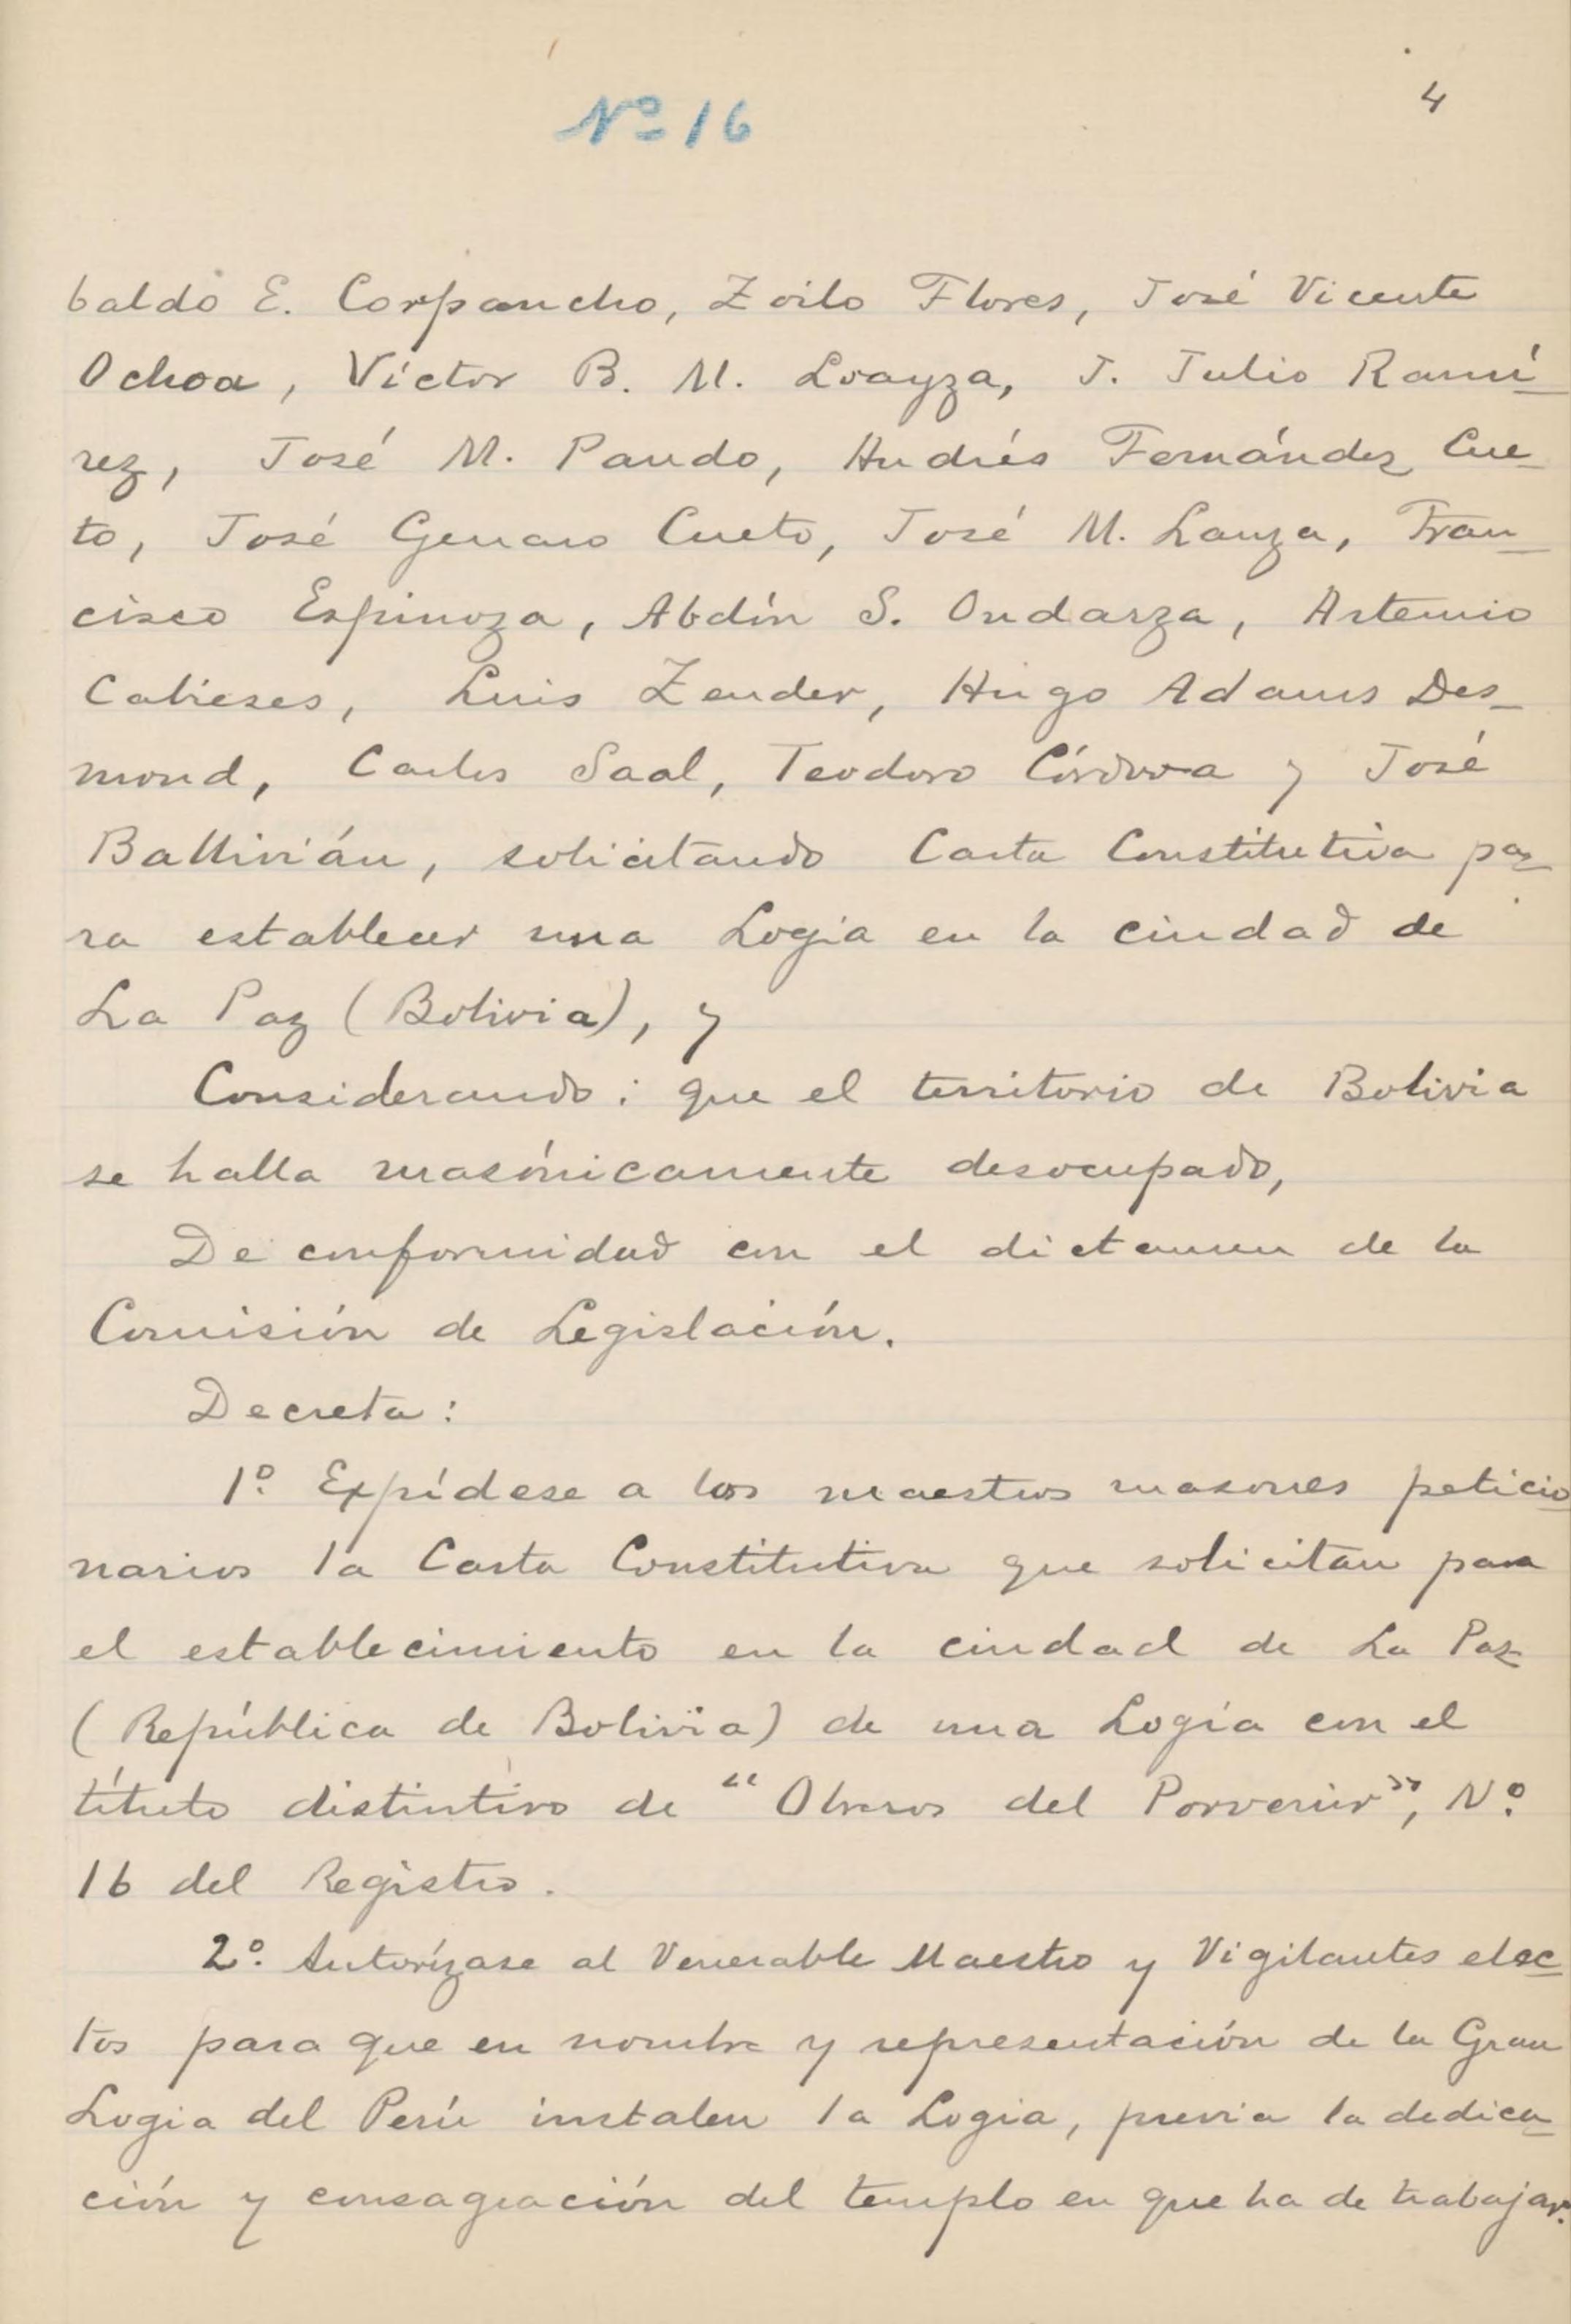 4
Nº 16
baldo E. Corpancho, Zoilo Flores, José Vicente
Ochoa, Víctor B. M. Loayza, J. Julio Ramí-
rez, José M. Pando, Andrés Fernández Cue-
to, José Genaro Cueto, José M. Lanza, Fran-
cisco Espinoza, Abdín S. Ondarza, Artemio
Cabieses, Luis Zender, Hugo Adams Des-
mond, Carlos Saal, Teodoro Córdova y José
Ballivián, solicitando Carta Constitutiva pa-
ra establecer una Logia en la ciudad de
La Paz (Bolivia), y
Considerando: que el territorio de Bolivia
se halla masónicamente desocupado,
De conformidad con el dictamen de la
Comisión de Legislación.
Decreta:
1º. Expídese a los maestros masones peticio
narios la Carta Constitutiva que solicitan para
el establecimiento en la ciudad de La Paz
(República de Bolivia) de una Logia con el
título distintivo de "Obreros del Porvenir", Nº.
16 del Registro.
2º. Autorízase al Venerable Maestro y Vigilantes elec-
tos para que en nombre y representación de la Gran
Logia del Perú instalen la Logia, previa la dedica-
ción y consagración del templo en que ha de trabajar.